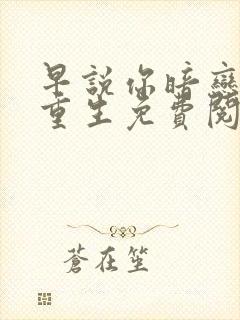 早說你暗戀
重生免費閱
蒼在笙